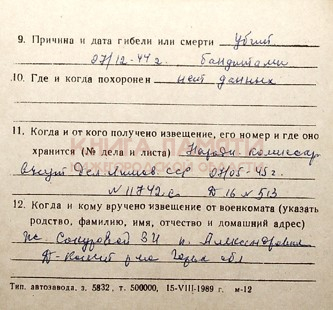 9. Причина и дата гибели или смерти убит
07/12-44 г. бандитами
10. Где и когда похоронен нет данных
11. Когда и от кого получено извещение, его номер и где оно
хранится (№ дела и листа) Народн. комиссар
внут. Дел 07/05-45 г.
N 11742 Д 16 N 513
12. Когда и кому вручено извещение от военкомата (указать
родство, фамилию, имя, отчество и домашний адрес)
п. Александровка
Д-Константин р-на Горьк обл
Тип. автозавода. з. 5832, т. 500000, 15-VIII-1989 г. м-12